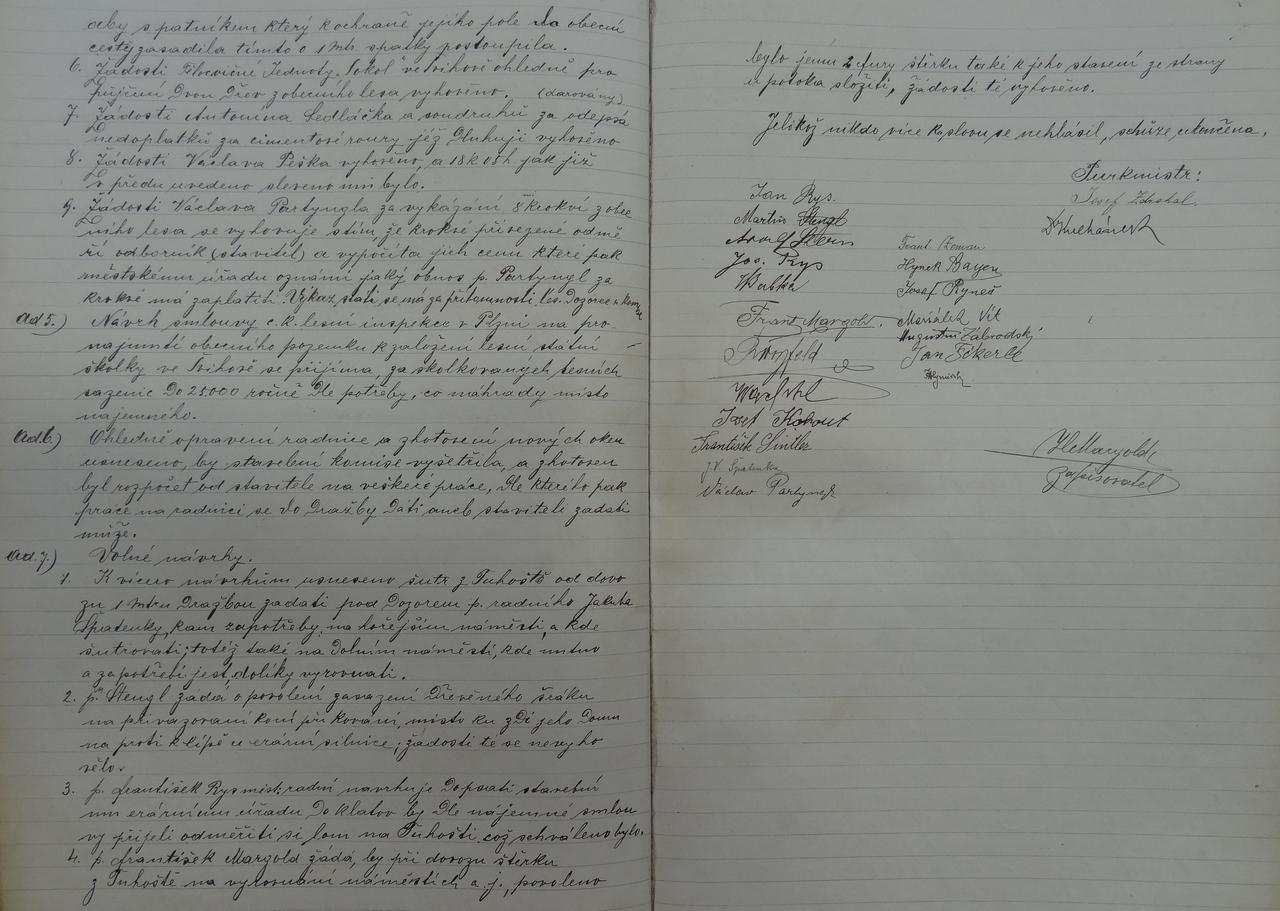 aby s patníkem který k ochraně jejího pole na obecní
cestě zasadila tímto o 1 Mtr. spátky postoupila.
6. Žádosti Tělocvičné Jednoty „Sokol“ ve Švihově ohledně pro
půjčení Dvou Dřev z obecního lesa vyhověno. (darovány)
7. Žádosti Antonína Sedláčka a soudruhů za odepsá
nedoplatků za cimentové roury jéž Dluhují vyhověno
8. Žádosti Václava Peška vyhověno, a 18 K 05 h jak již
v předu uvedeno sleveno mu bylo.
9. Žádosti Václava Partyngla za vykázání 8 krokví z obec
ního lesa se vyhovuje s tím, že krokve přivezené odmě
ří odborník (stavitel) a vypočítá jich cenu které pak
městskému úřadu oznámí jaký obnos p. Partyngl za
krokve má zaplatiti. Výkaz státi se má za přítomnosti les. Dozorce a
ad 5.) Návrh smlouvy c. k. lesní inspekce v Plzni na pro-
najmutí obecního pozemku k založení lesní státní
školky ve Švihově se přijímá, za školkovaných lesních
sazenic Do 25.000 ročně Dle potřeby, co náhrady místo
nájemného.
ad. 6.) Ohledně opravení radnice a zhotovení nových oken
usneseno, by stavební komise vyšetřila, a zhotoven
byl rozpočet od stavitele na veškeré práce, Dle kterého pak
práce na radnici se do Dražby Dáti aneb staviteli zadati
může.
ad. 7.) Volné návrhy.
1. K vícero návrhům usneseno šutr z Tuhoště od dovo
zu 1 Mtru Dražbou zadati pod Dozorem p. radního Jakuba
Špatenky, kam zapotřeby, na hořejším náměstí, a kde
šutrovati; totéž také na Dolním náměstí, kde nutno
a zapotřebí jest, dolíky vyrovnati.
2. p. Stengl žádá o povolení zasazení Dřevěného šráku
na přivazování koní při kování, místo ku zDi jeho Domu
na proti k lípě u erární silnice; žádosti té se nevyho
vělo.
3. p. František Rys měst. radní navrhuje Dopsati stavební
mu erárnímu úřadu Do Klatov by Dle nájemné smlou
vy přijeli odměřiti si lom na Tuhošti což schváleno bylo.
4. p. František Margold žádá, by při dovozu štěrku
z Tuhoště na vyrovnání náměstích a j., povoleno
bylo jemu 2 fury štěrku také k jeho stavení ze strany
u potoka složiti, žádosti té vyhověno.
Jelikož nikdo více ku slovu se nehlásil, schůze ukončena.
Purkmistr:
Jan Rys.
Josef Zdychal.
Martin Stengl
Adolf Stern
Frant. Zeman
Jos. Rys
Hynek Bayer
Wabka
Josef Ryneš
Frant Margold.
Mariálek Vít
Augustin Závodský
Jan Fikerle
Josef Kohout
František Šindler
J.V. Špatenka
Václav Partyngl
HMargold,
zapisovatel